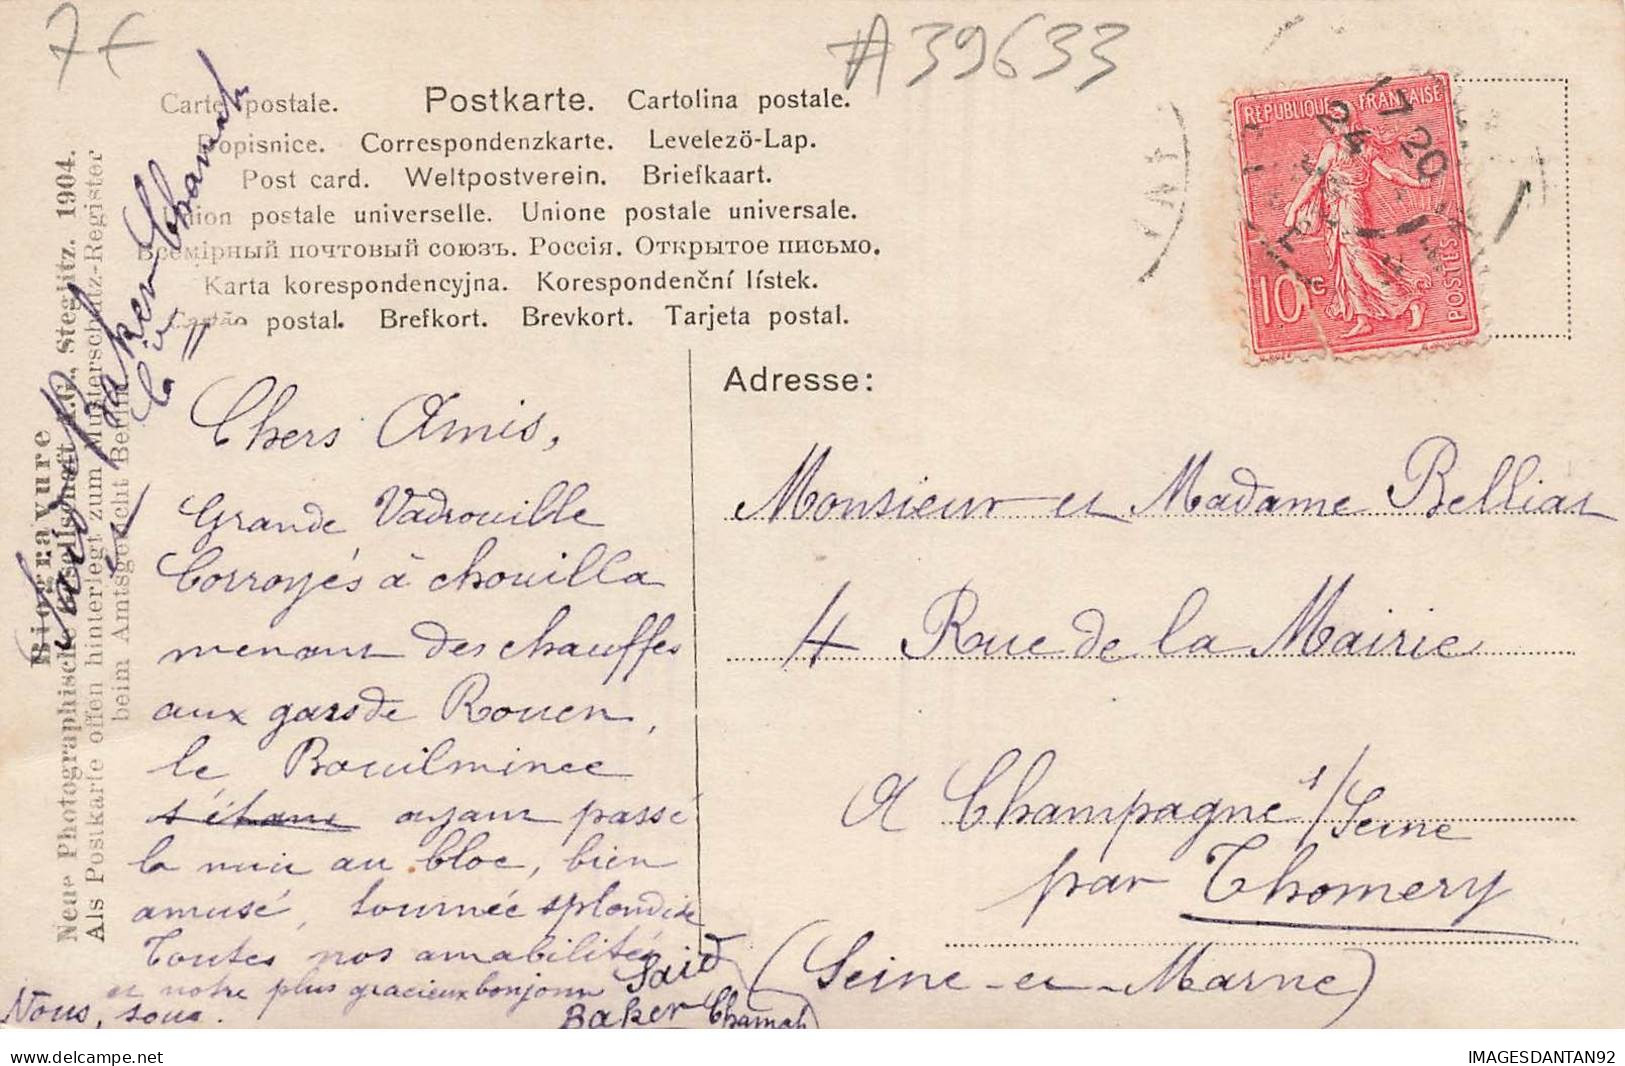 7€
A39633
Carte postale. Postkarte. Cartolina postale.
Dopisnice. Correspondenzkarte. Levelezö-Lap.
Post card. Weltpostverein. Briefkaart.
Union postale universelle. Unione postale universale.
Всемірный почтовый союзъ. Россія. Открытое письмо.
Karta korespondencyjna. Korespondenční lístek.
Cartão postal. Brefkort. Brevkort. Tarjeta postal.
REPUBLIQUE FRANÇAISE
10 c
POSTES
Adresse:
Monsieur et Madame Bellias
4 Rue de la Mairie
A Champagne s/Seine
par Thomery
(Seine-et-Marne)
Chers Amis,
Grande Vadrouille
Corroyés à chouilla
menant des chauffes
aux gars de Rouen,
le Bouilminee
s'étant ayant passé
la nuit au bloc, bien
amusé, tournée splondide
Toutes nos amabilités
et notre plus gracieux bonjour
Saïd
Baker Chamah
Nous, sous.
Baker Chamah
Biogravure
Neue Photographische Gesellschaft A.G., Steglitz. 1904.
Als Postkarte offen hinterlegt zum Musterschutz-Register
beim Amtsgericht Berlin.
IMAGESDANTAN92